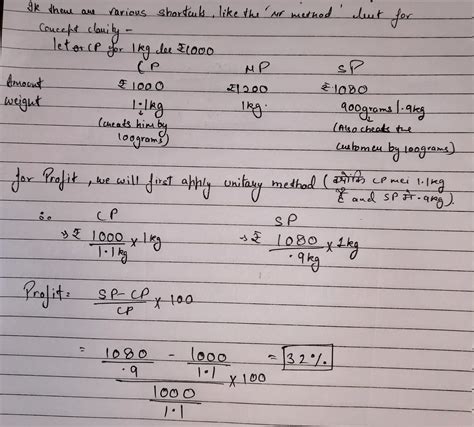 Ik there are various shortcuts, like the 'NY method' but for
concept clarity -
let or CP for 1 kg be ₹1000
CP MP SP
Amount ₹1000 ₹1200 ₹1080
weight 1.1kg 1kg. 900grams/.9kg
(cheats him by 100grams) (Also cheats the customer by 100grams)
for Profit, we will first apply unitary method (क्योंकि CP mei 1.1kg
है and SP में .9kg).
∴ CP SP
→ ₹ 1000/1.1kg × 1kg → ₹ 1080/.9kg × 1kg
Profit = SP-CP/CP × 100
= 1080/.9 - 1000/1.1 = 32%
1000/1.1 × 100